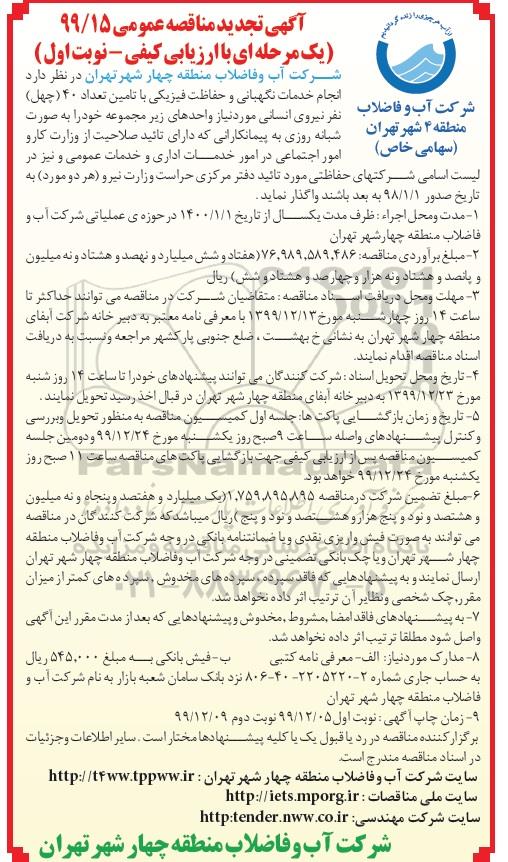 آگهی تجدید مناقصه عمومی ۹۹/۱۵
(یک مرحله ای با ارزیابی کیفی - نوبت اول)
شرکت آب و فاضلاب
منطقه ۴ شهر تهران
(سهامی خاص)
شرکت آب وفاضلاب منطقه چهار شهر تهران در نظر دارد
انجام خدمات نگهبانی و حفاظت فیزیکی با تامین تعداد ۴۰ (چهل)
نفر نیروی انسانی موردنیاز واحدهای زیر مجموعه خود را به صورت
شبانه روزی به پیمانکارانی که دارای تائید صلاحیت از وزارت کار و
امور اجتماعی در امور خدمات اداری و خدمات عمومی و نیز در
لیست اسامی شرکتهای حفاظتی مورد تائید دفتر مرکزی حراست وزارت نیرو (هر دو مورد) به
تاریخ صدور ۹۸/۱/۱ به بعد باشند واگذار نماید.
۱-مدت ومحل اجراء : ظرف مدت یکسال از تاریخ ۱۴۰۰/۱/۱ در حوزه ی عملیاتی شرکت آب و
فاضلاب منطقه چهار شهر تهران
۲-مبلغ برآوردی مناقصه: ۷۶,۹۸۹,۵۸۹,۴۸۶(هفتاد و شش میلیارد و نهصد و هشتاد و نه میلیون
و پانصد و هشتاد و نه هزار و چهار صد و هشتاد و شش) ریال
۳-مهلت ومحل دریافت اسناد مناقصه : متقاضیان شرکت در مناقصه می توانند حداکثر تا
ساعت ۱۴ روز چهارشنبه مورخ ۱۳۹۹/۱۲/۱۳ با معرفی نامه معتبر به دبیر خانه شرکت آبفای
منطقه چهار شهر تهران به نشانی خ بهشت ، ضلع جنوبی پارکشهر مراجعه ونسبت به دریافت
اسناد مناقصه اقدام نمایند.
۴-تاریخ ومحل تحویل اسناد : شرکت کنندگان می توانند پیشنهادهای خود را تا ساعت ۱۴ روز شنبه
مورخ ۱۳۹۹/۱۲/۲۳ به دبیر خانه آبفای منطقه چهار شهر تهران در قبال اخذ رسید تحویل نمایند.
۵-تاریخ و زمان بازگشایی پاکت ها: جلسه اول کمیسیون مناقصه به منظور تحویل وبررسی
و کنترل پیشنهادهای واصله ساعت ۹ صبح روز یکشنبه مورخ ۹۹/۱۲/۲۴ و دومین جلسه
کمیسیون مناقصه پس از ارزیابی کیفی جهت بازگشایی پاکت های مناقصه ساعت ۱۱ صبح روز
یکشنبه مورخ ۹۹/۱۲/۲۴ خواهد بود.
۶-مبلغ تضمین شرکت درمناقصه ۱,۷۵۹,۸۹۵,۸۹۵(یک میلیارد و هفتصد وپنجاه و نه میلیون
و هشتصد و نود و پنج هزار و هشتصد و نود و پنج )ریال میباشد که شرکت کنندگان در مناقصه
می توانند به صورت فیش واریزی نقدی و یا ضمانتنامه بانکی در وجه شرکت آب وفاضلاب منطقه
چهار شهر تهران و یا چک بانکی تضمینی در وجه شرکت آب وفاضلاب منطقه چهار شهر تهران
ارسال نمایند و به پیشنهادهایی که فاقد سپرده ، سپرده های مخدوش ، سپرده های کمتر از میزان
مقرر، چک شخصی ونظایر آن ترتیب اثر داده نخواهد شد.
۷- به پیشنهادهای فاقد امضا ,مشروط ,مخدوش و پیشنهادهایی که بعد از مدت مقرر این آگهی
واصل شود مطلقا ترتیب اثر داده نخواهد شد.
۸-مدارک موردنیاز: الف- معرفی نامه کتبی ب-فیش بانکی به مبلغ ۵۴۵,۰۰۰ ریال
به حساب جاری شماره ۲-۲۲۰۵۲۲۰-۴۰-۸۰۶ نزد بانک سامان شعبه بازار به نام شرکت آب و
فاضلاب منطقه چهار شهر تهران
۹- زمان چاپ آگهی : نوبت اول ۹۹/۱۲/۰۵ نوبت دوم ۹۹/۱۲/۰۹
برگزار کننده مناقصه در رد یا قبول یک یا کلیه پیشنهادها مختار است . سایر اطلاعات وجزئیات
در اسناد مناقصه مندرج است.
سایت شرکت آب و فاضلاب منطقه چهار شهر تهران : http://t4ww.tppww.ir
سایت ملی مناقصات : http://iets.mporg.ir
سایت شرکت مهندسی: http:tender.nww.co.ir
شرکت آب و فاضلاب منطقه چهار شهر تهران